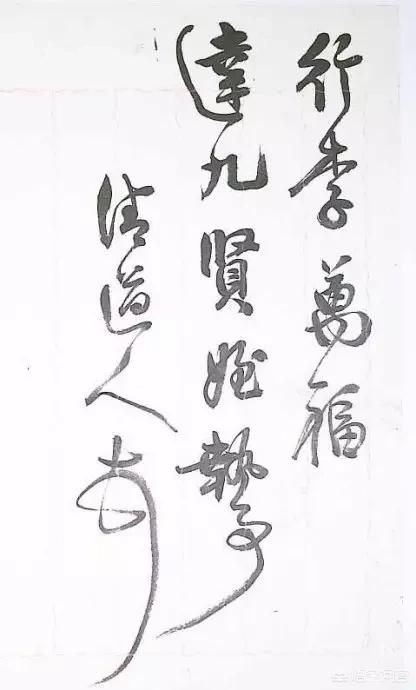 行李萬福
達九賢姪執事
清道人